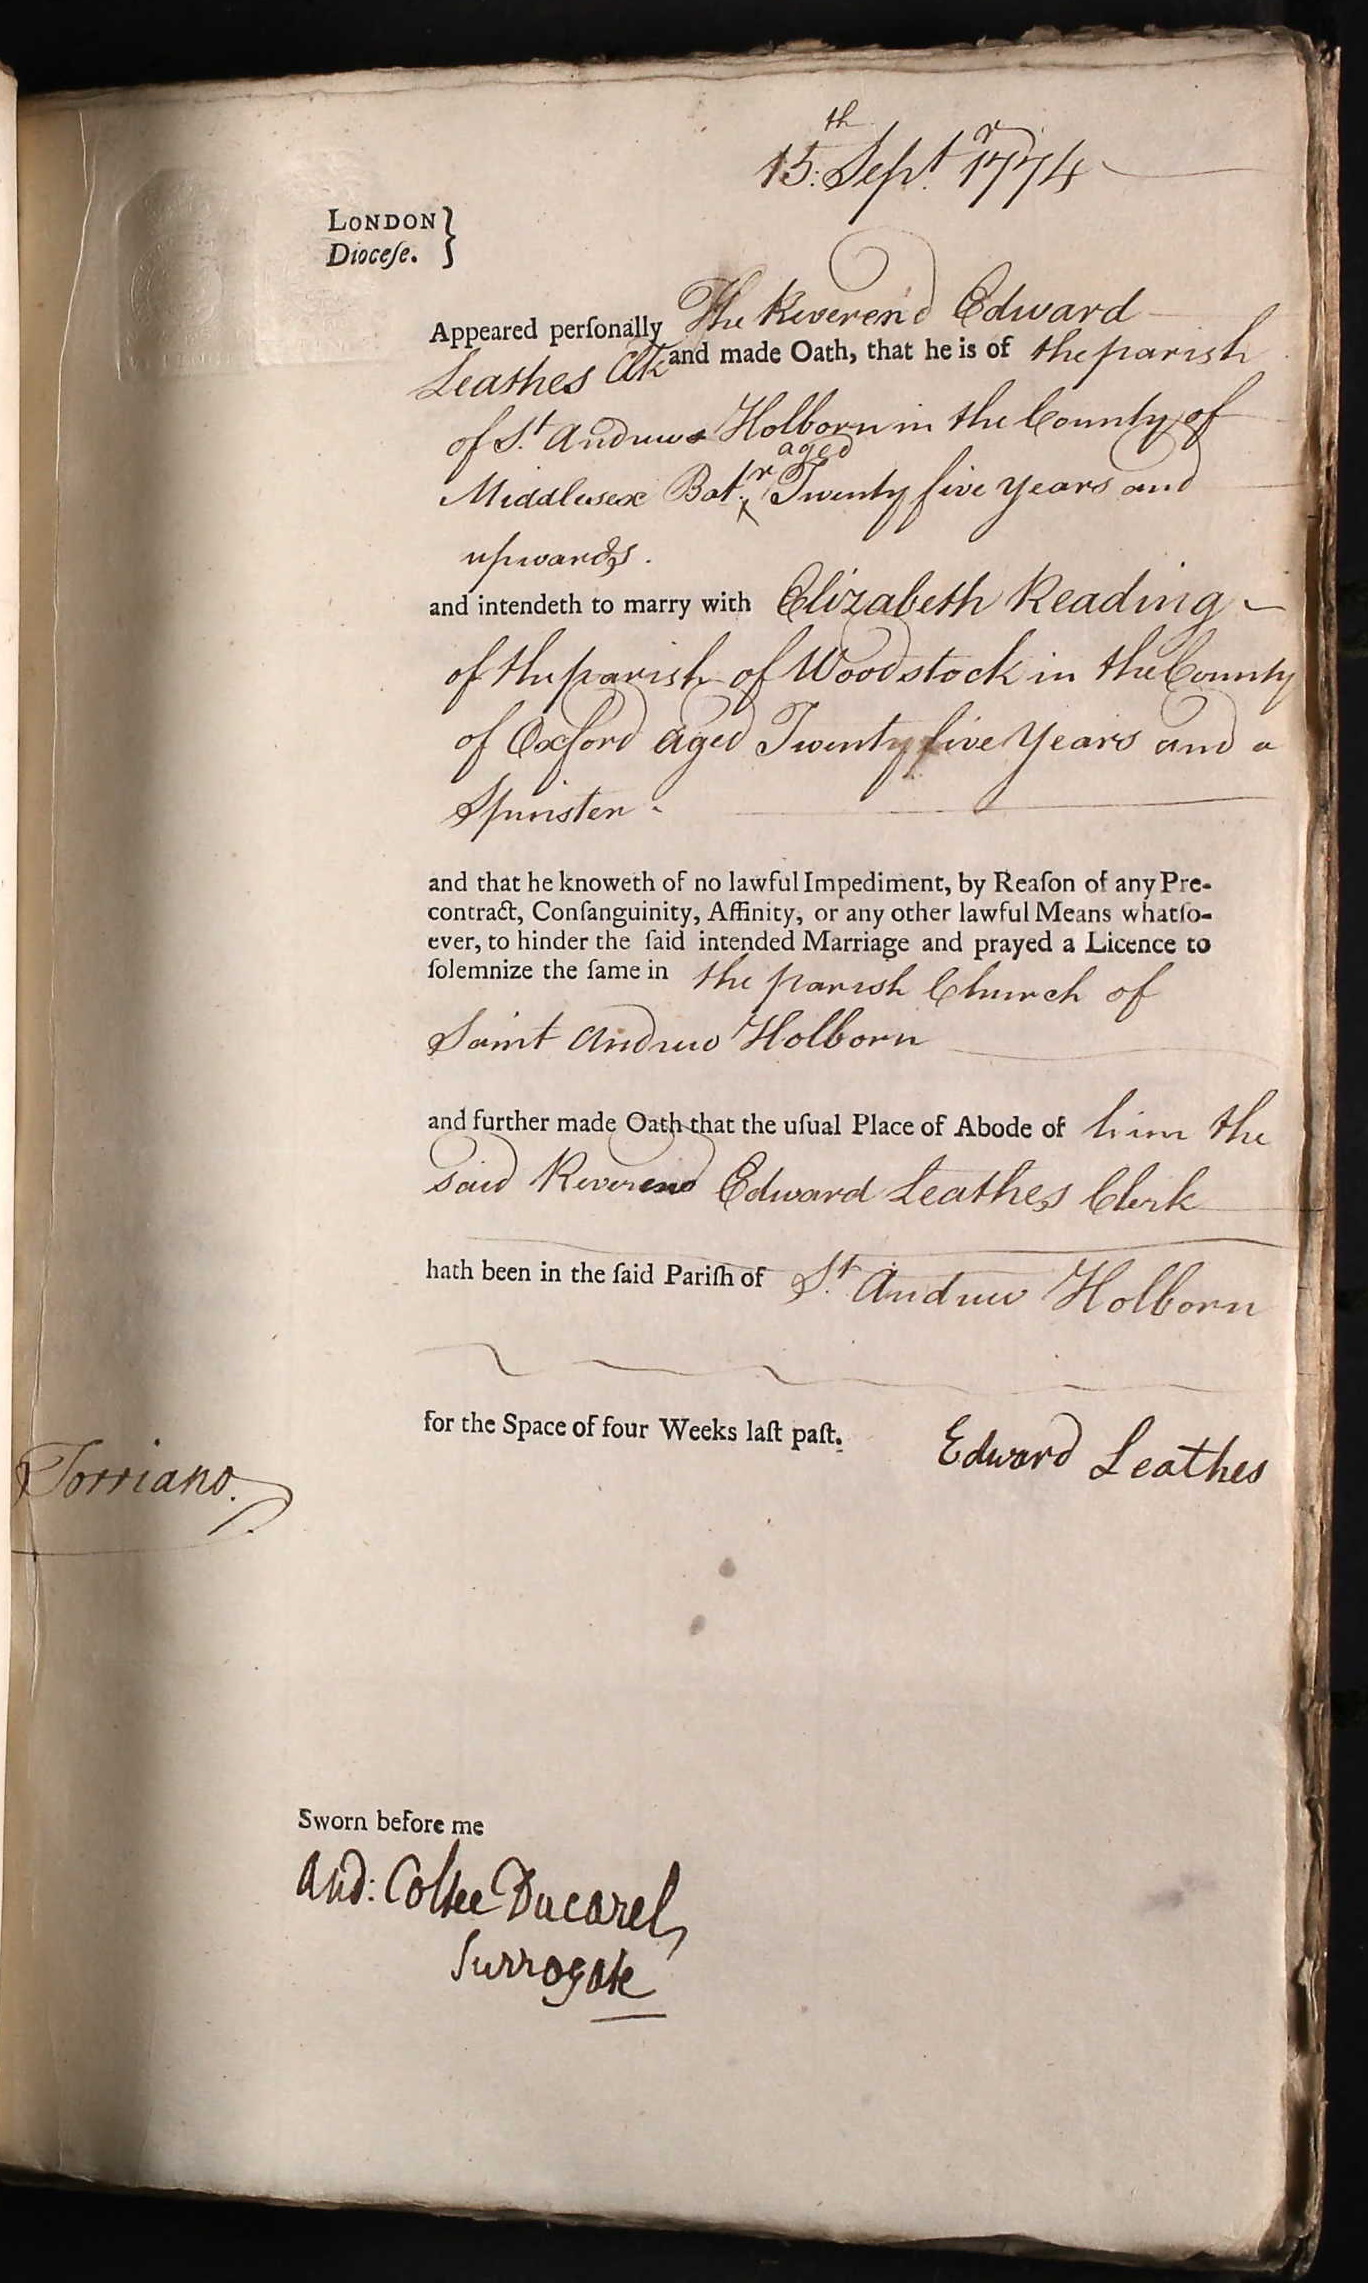 15:th Sept.r 1774
LONDON }
Dioceſe. }
Appeared perſonally The Reverend Edward
Leathes Clk and made Oath, that he is of the parish
of St. Andrews Holborn in the County of
aged
Middlesex Bat.r Twenty five years and
upwards.
and intendeth to marry with Elizabeth Reading
of the parish of Woodstock in the County
of Oxford aged Twenty five Years and a
Spinster
and that he knoweth of no lawful Impediment, by Reaſon of any Pre-
contract, Conſanguinity, Affinity, or any other lawful Means whatſo-
ever, to hinder the ſaid intended Marriage and prayed a Licence to
ſolemnize the ſame in the parish Church of
Saint Andrew Holborn
and further made Oath that the uſual Place of Abode of him the
said Reverend Edward Leathes Clerk
hath been in the ſaid Pariſh of St. Andrew Holborn
for the Space of four Weeks laſt paſt. Edward Leathes
Torriano.
Sworn before me
And: Coltee Ducarel,
Surrogate